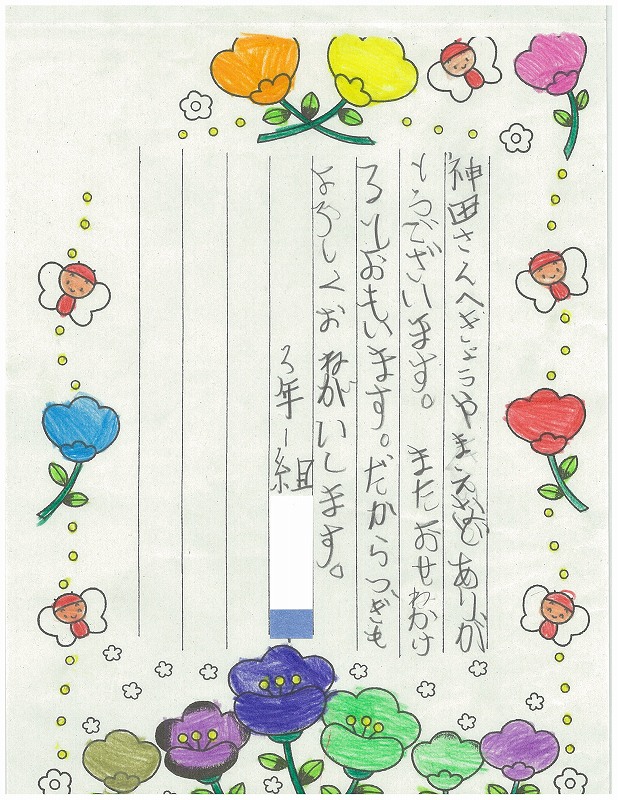 神田さんへきょうやまえなどありが
とうございます。 またおせわかけ
るとおもいます。だからつぎも
よろしくおねがいします。
3年1組